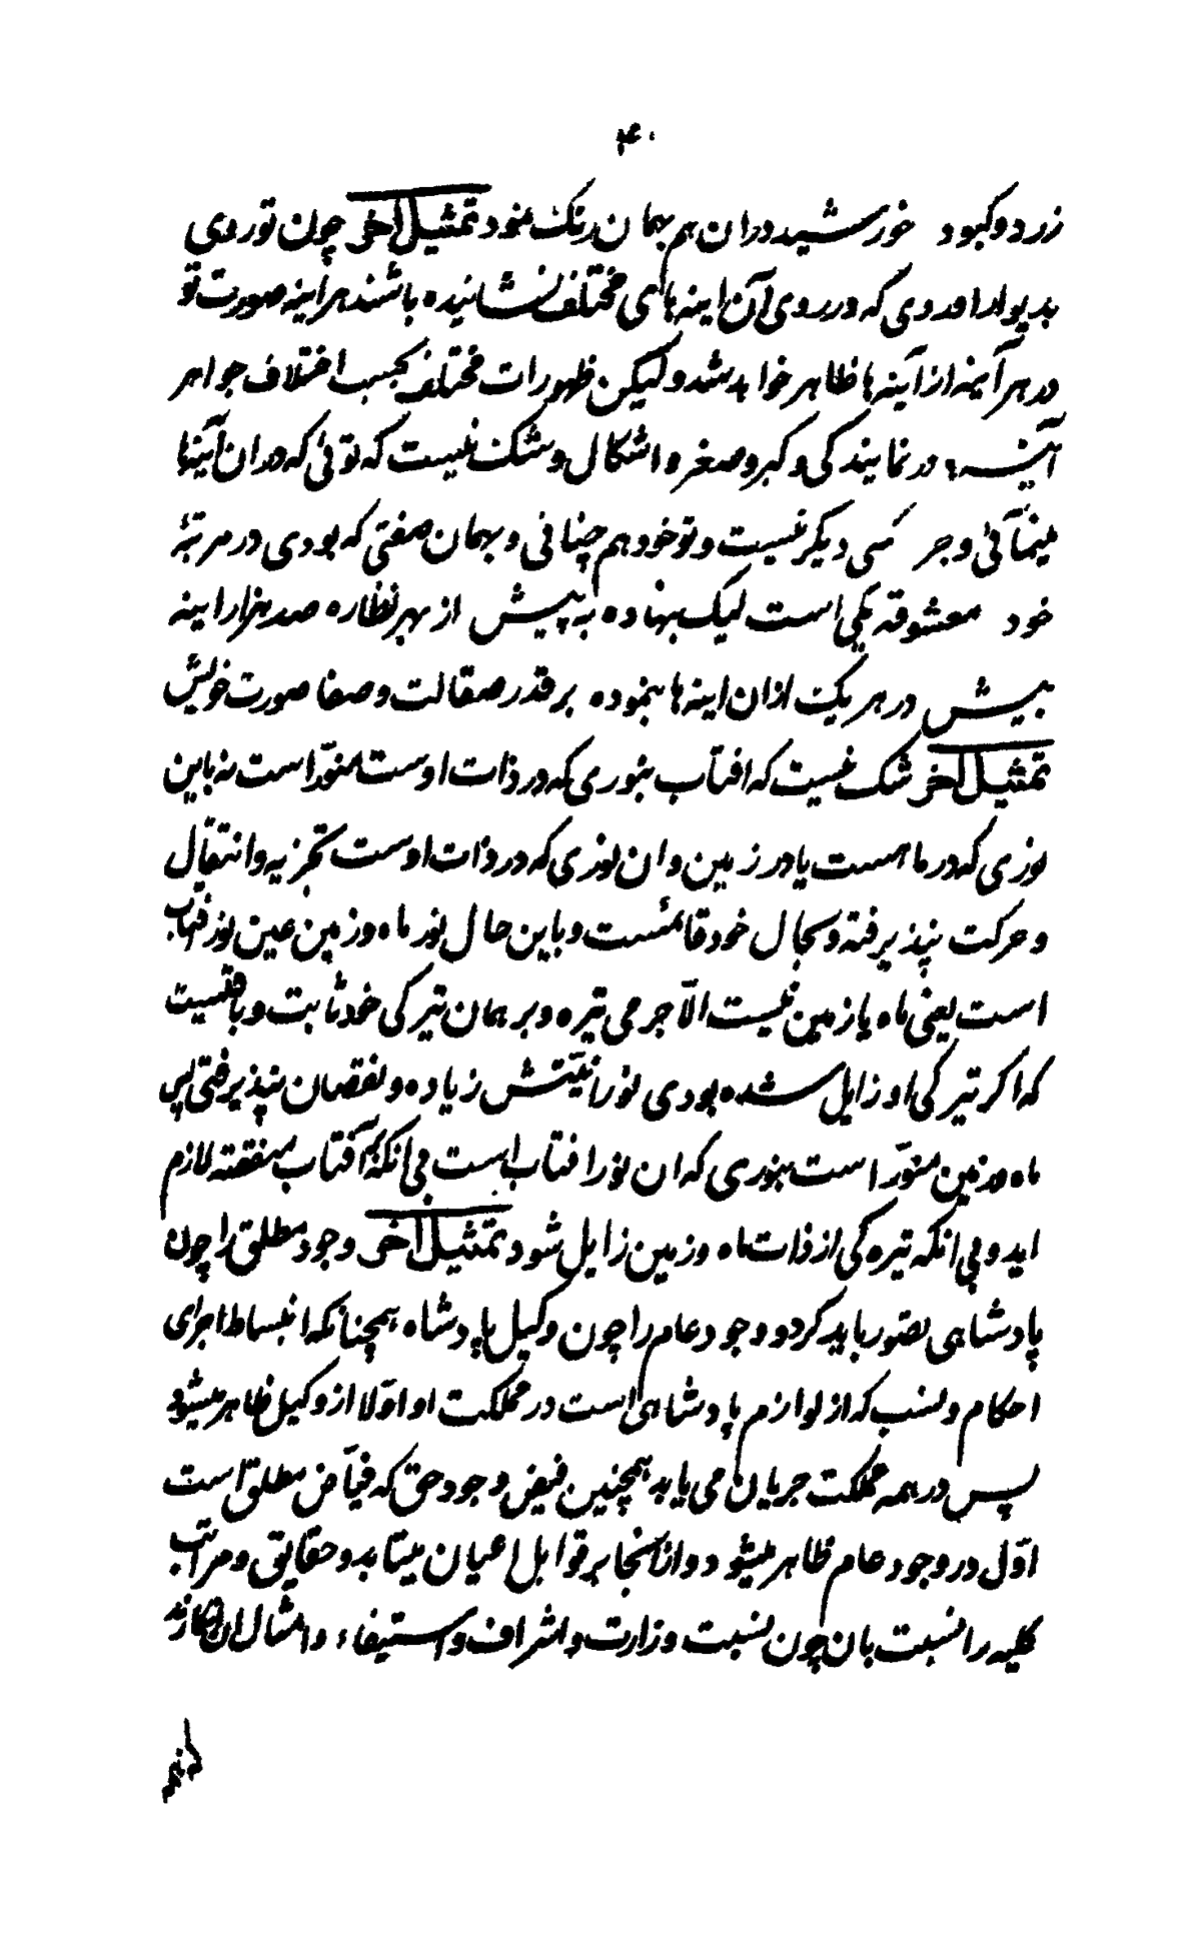 ۴۰
زرد و کبود خورشید دران هم بهمان رنک نمود تمثیل اخر چون تو روی
بدیوار اوردی که در روی آن اینه های مختلف نشانیده باشند هراینه صورت تو
در هر آینه از آینه ها ظاهر خواهد شد و لیکن ظهورات مختلف بحسب اختلاف جواهر
آینه در نمایندکی و کبر و صغر و اشکال و شک نیست که توئی که دران آینها
مینمآئی و جز کسی دیکر نیست و تو خود هم چنانی و بهمان صفتی که بودی در مرتبهٔ
خود معشوقه یکی است لیک بنهاده به پیش از بهر نظاره صد هزار اینه
بیش در هر یک ازان اینه ها بنموده بر قدر صقالت و صفا صورت خویش
تمثیل اخر شک نیست که افتاب بنوری که در ذات اوست منوّر است نه باین
نوری که در ماهست یا در زمین و ان نوری که در ذات اوست تجزیه و انتقال
و حرکت نپذیرفته و بحال خود قائمست و باین حال نور ماه و زمین عین نور افتاب
است یعنی ماه یا زمین نیست الّا جرمی تیره و بر همان تیرکی خود ثابت و باقیست
که اکر تیرکی او زایل شده بودی نورانیّتش زیاده و نقصان نپذیرفتی پس
ماه و زمین منوّر است بنوری که ان نور افتاب است بی انکه بآفتاب منقصه لازم
اید و بی انکه تیره کی از ذات ماه و زمین زایل شود تمثیل اخر وجود مطلق را چون
پادشاهی تصور باید کرد و وجود عام را چون وکیل پادشاه همچنانکه انبساط اجرای
احکام و نسب که از لوازم پادشاهی است در مملکت او اوّلا از وکیل ظاهر میشود
پس در همه مملکت جریان می یابد همچنین فیض وجود حق که فیّاض مطلق است
اوّل در وجود عام ظاهر میشود و ازانجا بر قوابل اعیان میتابد و حقایق و مراتب
کلیه را نسبت بان چون نسبت وزارت و اشراف و استیفاء و امثال ان